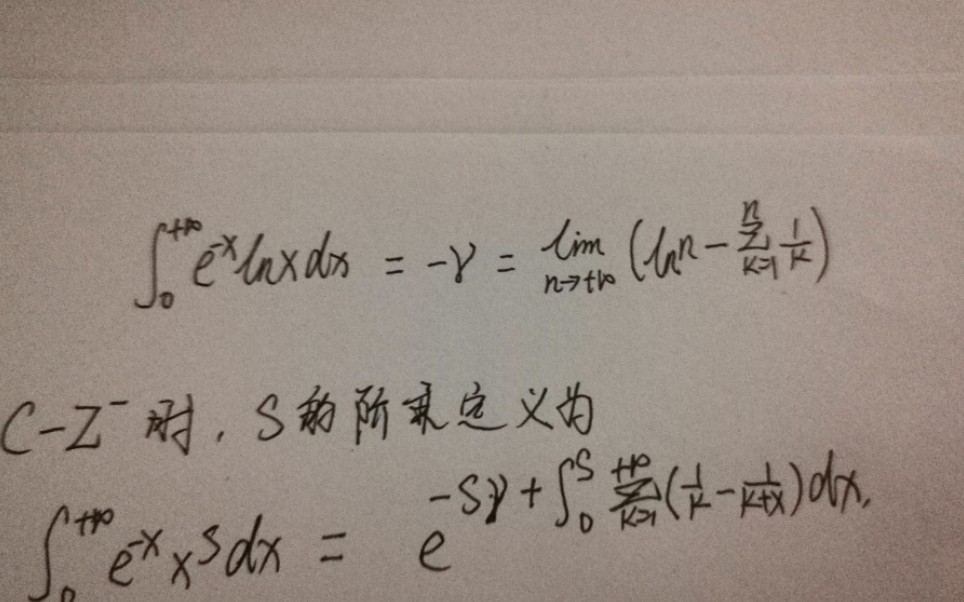 ∫₀^{+∞} e^{-x} ln x dx = -γ = lim_{n→+∞} (ln n - ∑_{k=1}^{n} 1/k)
C-Z⁻ 时, S的阶乘定义为
∫₀^{+∞} e^{-x} x^s dx = e^{-sγ + ∫₀^s ∑_{k=1}^{+∞} (1/k - 1/(k+x)) dx}.